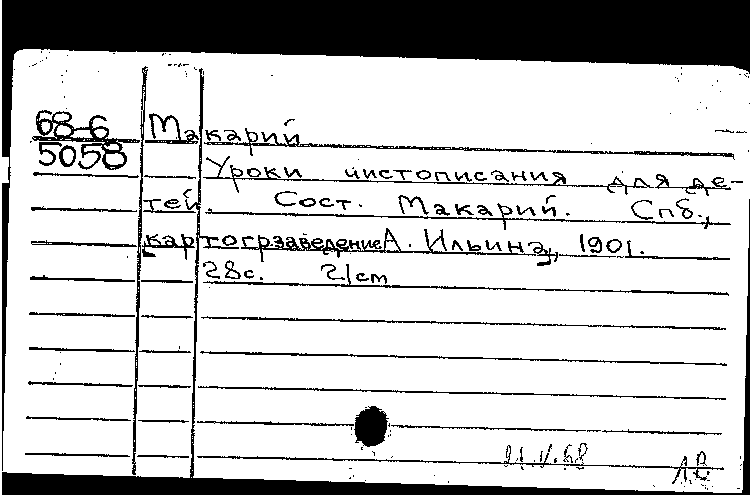 68-6
5058
Макарий
Уроки чистописания для де-
тей. Сост. Макарий. Спб.,
картогр заведение А. Ильина, 1901.
28с. 21 cm
21.V.68